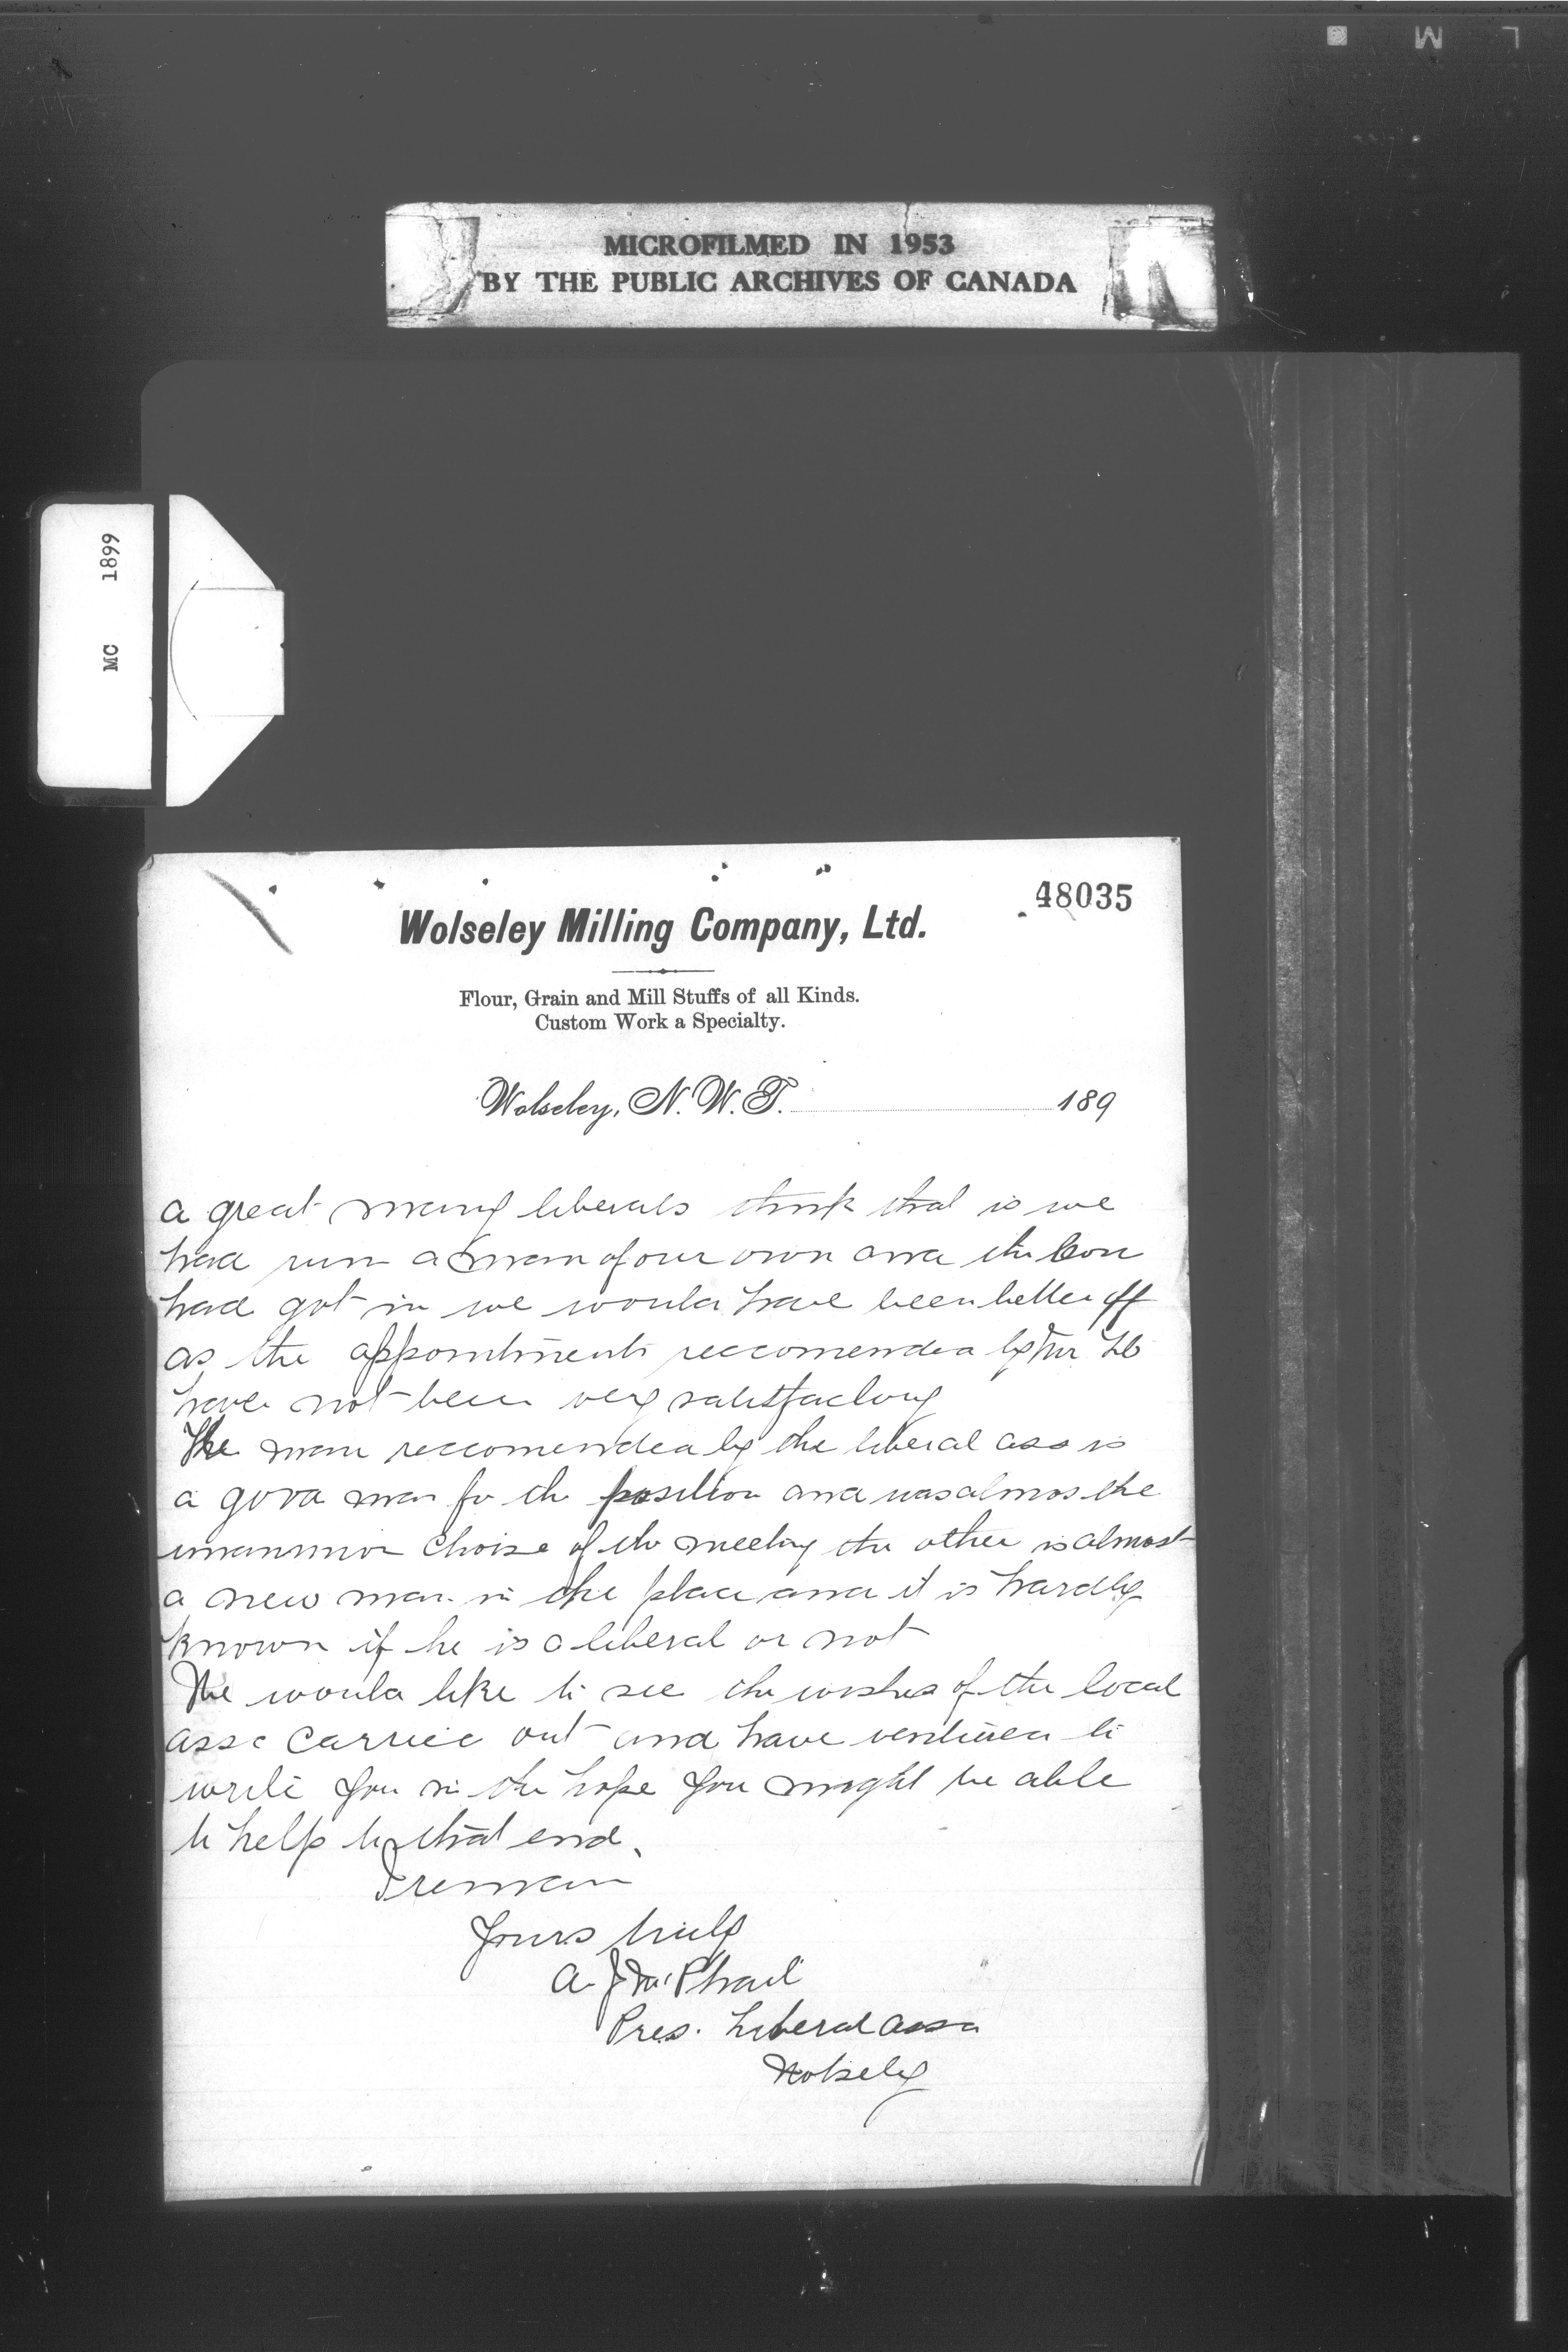 L M
MICROFILMED IN 1953
BY THE PUBLIC ARCHIVES OF CANADA
MC 1899
48035
Wolseley Milling Company, Ltd.
Flour, Grain and Mill Stuffs of all Kinds.
Custom Work a Specialty.
Wolseley, N. W. T. 189
a great many liberals think that is we
had run a man of our own and the Con
had got in we would have been better off
as the appointments reccomended by
have not been very satisfactory
The man reccomended by the liberal ass is
a good man for the position and was almos the
unanimon Choise of the meeting the other is almost
a new man in the place and it is hardly
known if he is a liberal or not
We would like to see the wishes of the local
asso carried out and have ventured to
write you in the hope you might be able
to help to that end.
I remain
Yours truly
A. J. McPhail
Pres. Liberal Assn
Wolseley